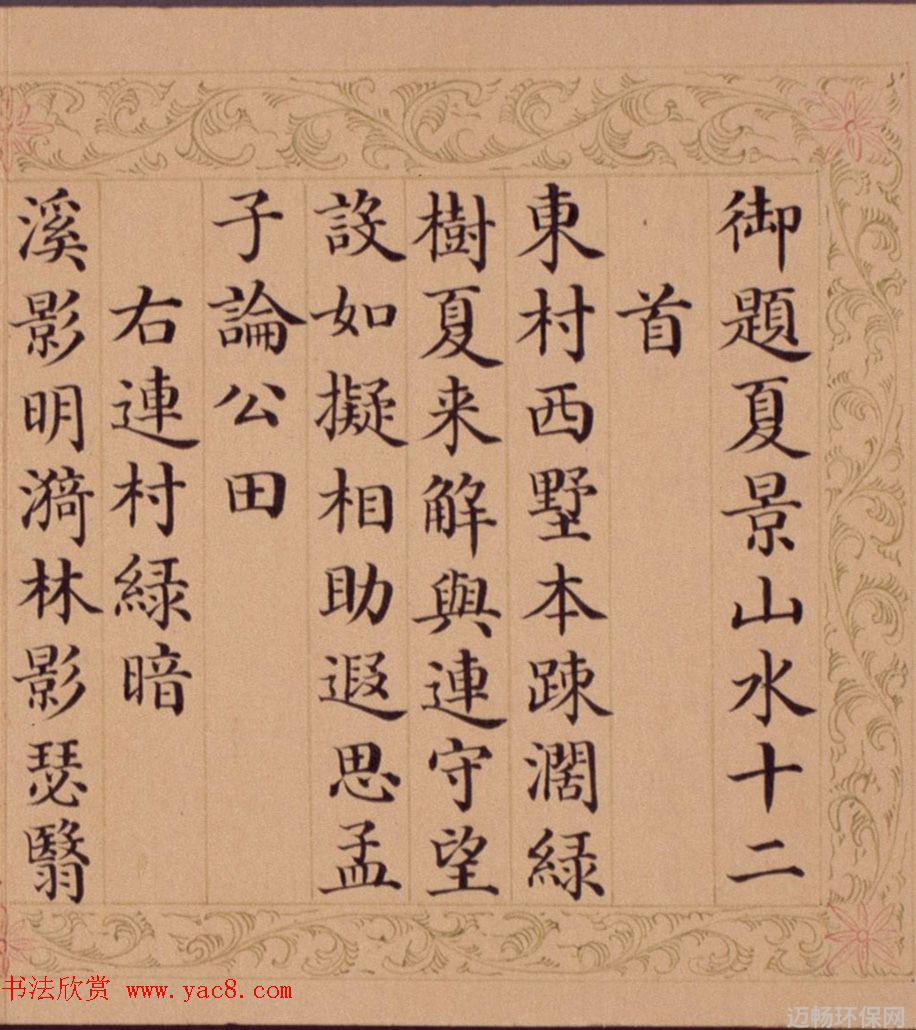 御題夏景山水十二
首
東村西墅本踈濶緑
樹夏来解與連守望
設如擬相助遐思孟
子論公田
右連村緑暗
溪影明漪林影瑟翳
书法欣赏 www.yac8.com
迈畅环保网